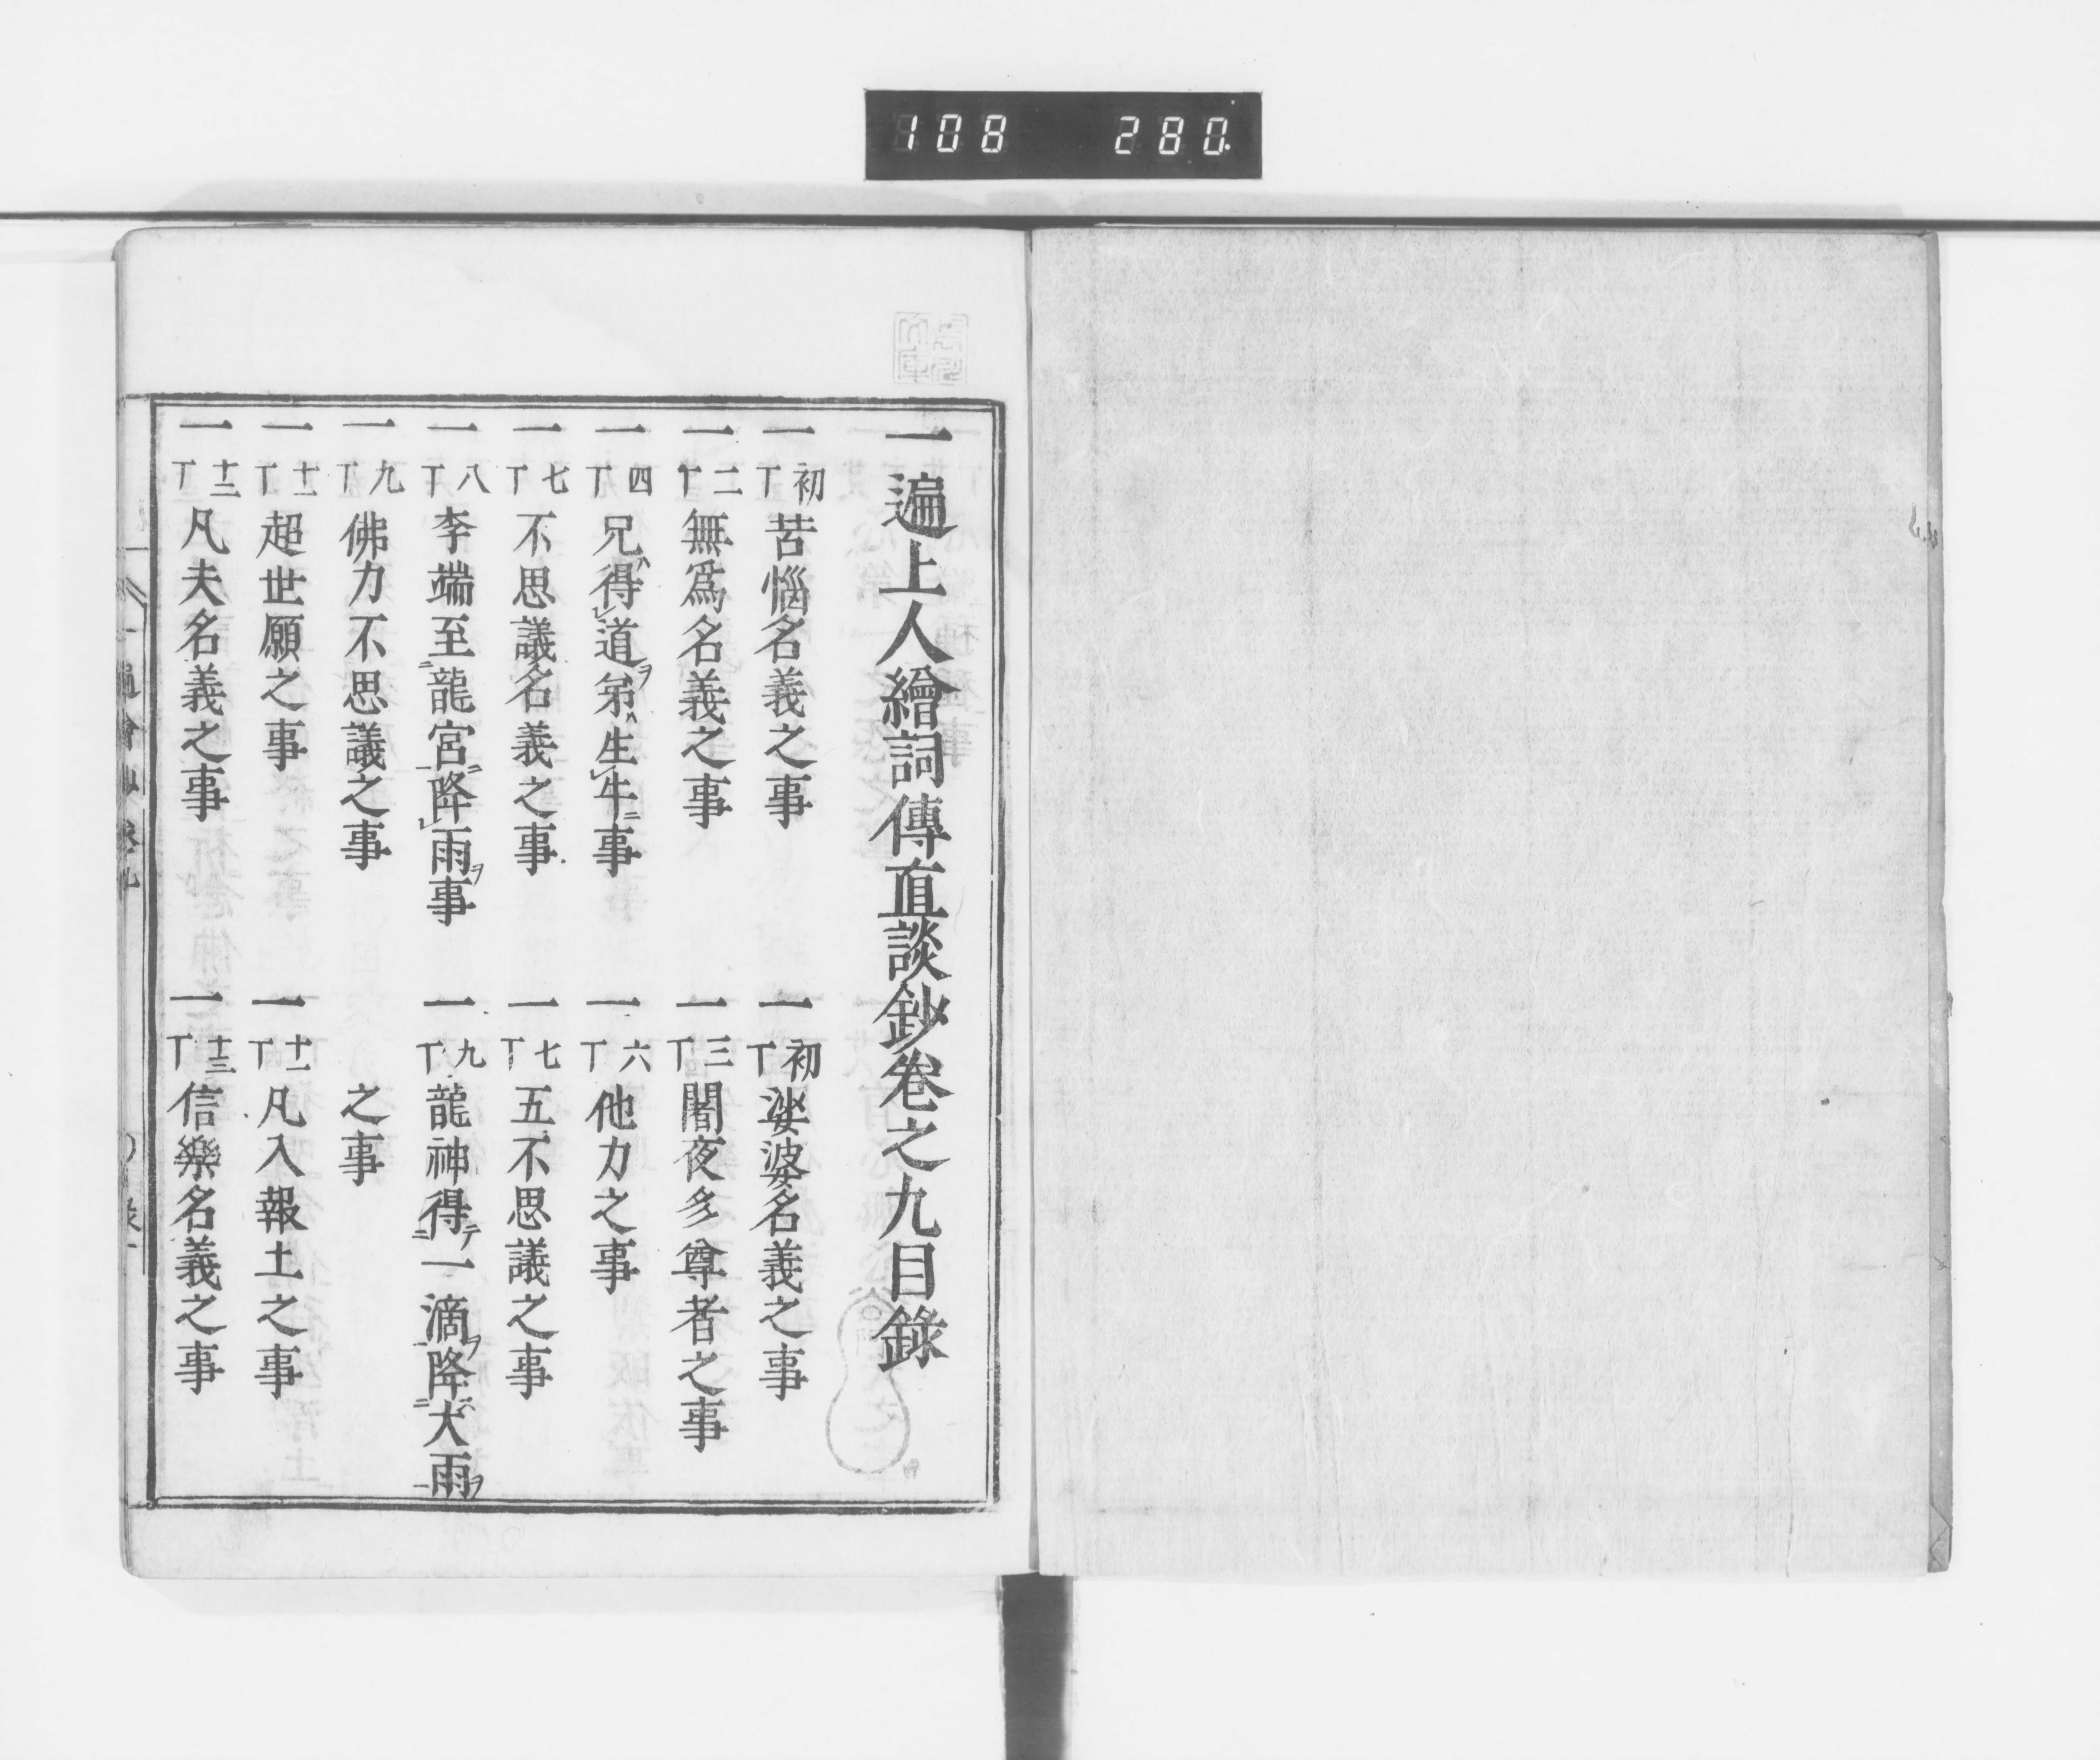 108 280
一遍上人繪詞傳直談鈔卷之九目錄
一 初丁 苦惱名義之事
一 初丁 娑婆名義之事
一 二丁 無爲名義之事
一 三丁 闇夜多尊者之事
一 四丁 兄ハ得レ道ヲ弟ハ生レ牛ニ事
一 六丁 他力之事
一 七丁 不思議名義之事
一 七丁 五不思議之事
一 八丁 李端至ニ龍宮ニ一降レ雨ヲ事
一 九丁 龍神得テ二一滴ヲ一降ス二大雨ヲ一
之事
一 九丁 佛力不思議之事
一 十一丁 超世願之事
一 十一丁 凡入報土之事
一 十二丁 凡夫名義之事
一 十三丁 信樂名義之事